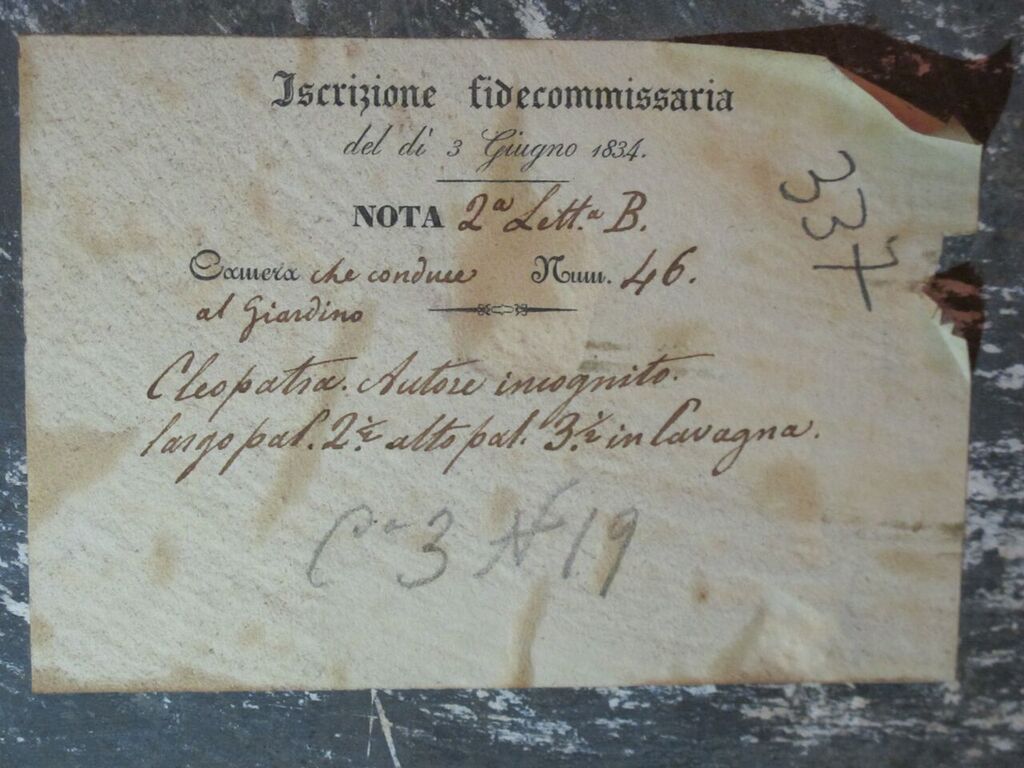 Iscrizione fidecommissaria
del dì 3 Giugno 1834.
NOTA 2ª Lett.ª B.
Camera che conduce Num. 46.
al Giardino
Cleopatra. Autore incognito.
largo pal. 2.½ alto pal. 3.½ in Lavagna.
Cª 3 N 19
337